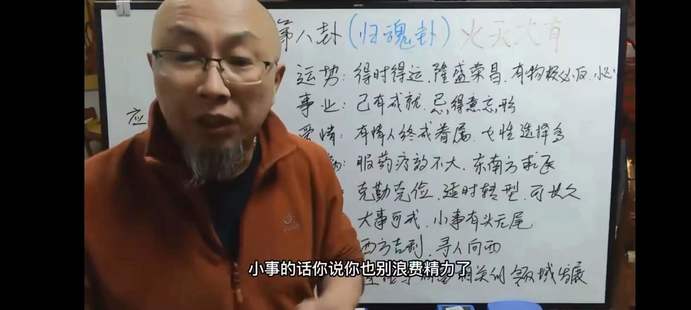 第八卦(归魂卦) 火天大有
运势: 得时得运、隆盛荣昌、有物极必反、
事业: 已有成就、忌得意忘形
应
爱情: 有情人终成眷属、女性选择多
服药疗效不大、东南方求医
克勤克俭、适时转型、可长久
大事可成、小事有头无尾
西方吉利、寻人向西
领域发展
小事的话你说你也别浪费精力了